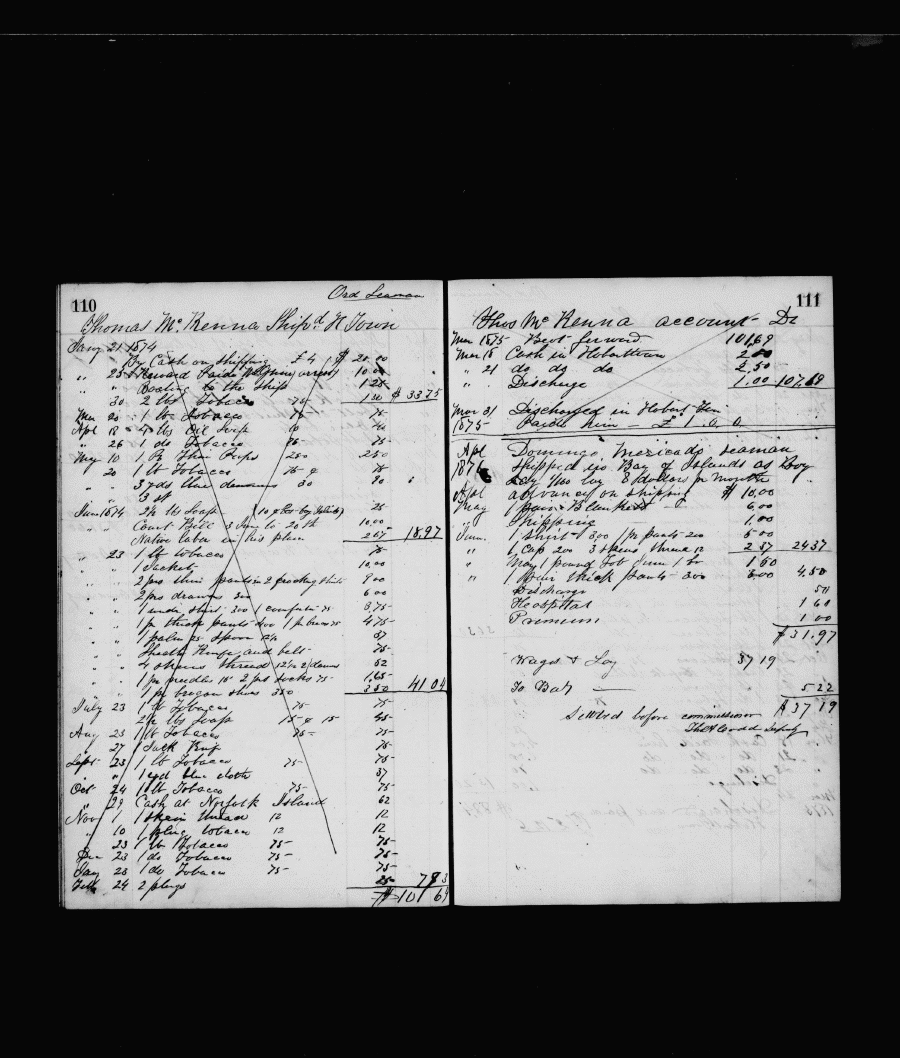 110
Ord Seaman
Thomas Mc Kenna Ship.d H Town
Jany 21 1874
By Cash on Shipping £4 $ 20.00
" 25 Reward Paid arrest 10.00
" " Boating to the Ship 1.25
30 2 lbs Tobacco 75 1 50 $ 33 75
Mar 20 1 lb Tobacco 75 75
Apl 12 4 lbs Oil Soap
" 26 1 do Tobacco 75 75
May 10 1 Pr Thin 250 2 50
" 20 1 lb Tobacco 75
" " 3 yds blue 30 90
3 st
June 1874 2½ lbs Soap 25
" " Court Bill 3 20th 10.00
Native labor in this place 2 67 18.97
" 23 1 lb tobacco 75
" " 1 Jacket 10.00
" " 2 prs thin pants 2 shirts 9 00
" " 2 prs drawers 300 6 00
" " 1 under shirt 300 1 comforter 75 3,75
" " 1 pr thick pants 400 1 p 75 4 75
" " 1 palm 25 spoon 12½ 37
" " Sheath Knife and belt 75
" " 4 skeins thread 12½ 52
" " 1 pr needles 15 2 prs socks 75 1,65
" " 1 pr brogan shoes 350 3 50 41 04
July 23 1 lb Tobacco 75 75
2½ lbs Soap 15 45
Aug 23 1 lb Tobacco 75 75
" 27 1 Jack Knife 75
Sept 23 1 lb Tobacco 75 75
" " 1 yd blue cloth 37
Oct 24 1 lb Tobacco 75 75
" 29 Cash at Norfolk Island 62
Nov 1 1 skein thread 12 12
" 10 1 plug tobacco 12 12
" 23 1 lb Tobacco 75 75
Dec 23 1 do Tobacco 75 75
Jany 23 1 do Tobacco 75 75
Feb 24 2 plugs 25 7 93
$ 101 69
111
Thos Mc Kenna account Dr
Mar 1875 Brot forward 101,69
Mar 18 Cash in Hobarttown 2 00
" 21 do do do 2,50
" " Discharge 1.00 107,19
Mar 31 Discharged in Hobart
1875 Paide him £1.0.0
Apl Domingo seaman
1876 Shipped in Bay of Islands as Boy
Lay 8 dollars pr month
Apl advance on shipping $ 10,00
May 1 pair Blankets 6,00
" Shipping 1,00
June 1 shirt 300 1 pr pants 200 5 00
" 1 Cap 200 3 skeins thread 12 2 37 24 37
" May 1 pound Tob June 1 lb 1 50
" 1 pair thick pants 300 3,00 4,50
Discharge 50
Hospital 1 60
Premium 1 00
$ 31.97
Wages & Lay 37 19
To Bal 5 22
$ 37 19
Settled before commissioner